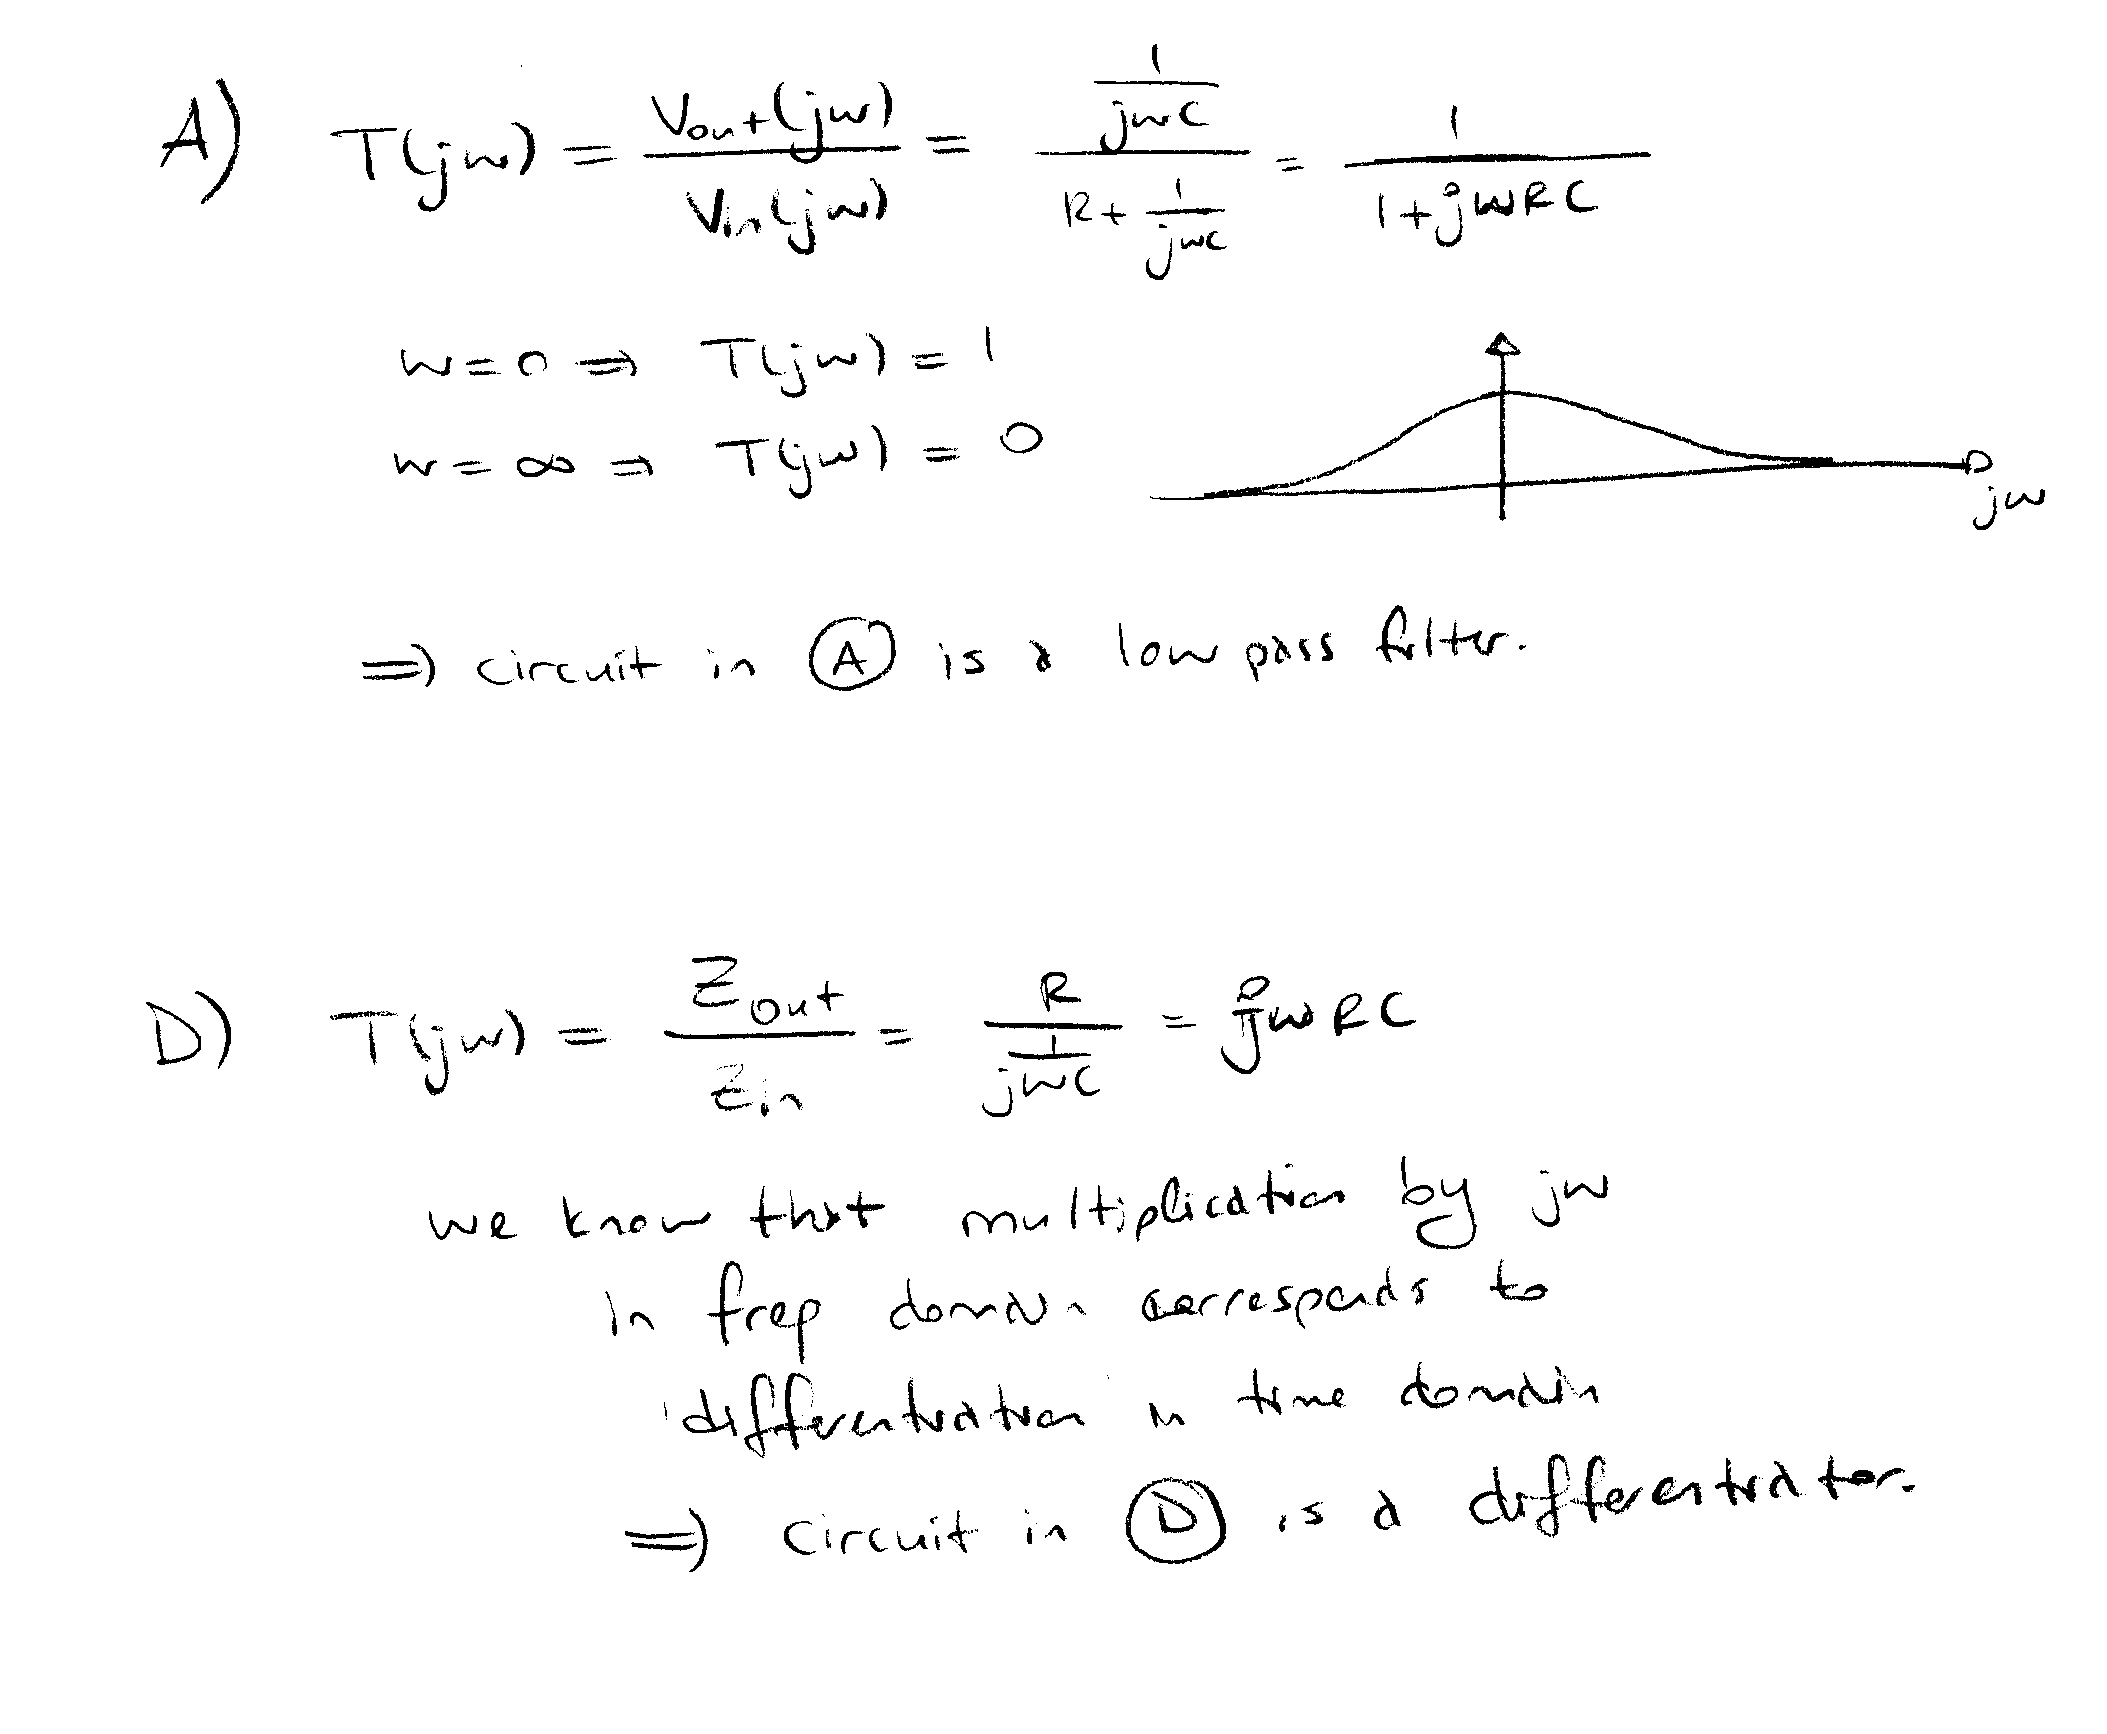 A) T(jw) = Vout(jw) / Vin(jw) = (1/jwC) / (R + 1/jwC) = 1 / (1+jwRC)
w=0 ⇒ T(jw) = 1
w=∞ ⇒ T(jw) = 0
jw
⇒ circuit in Ⓐ is a low pass filter.
D) T(jw) = Zout / Zin = R / (1/jwC) = jwRC
we know that multiplication by jw
in freq domain corresponds to
differentiation in time domain
⇒ circuit in Ⓓ is a differentiator.